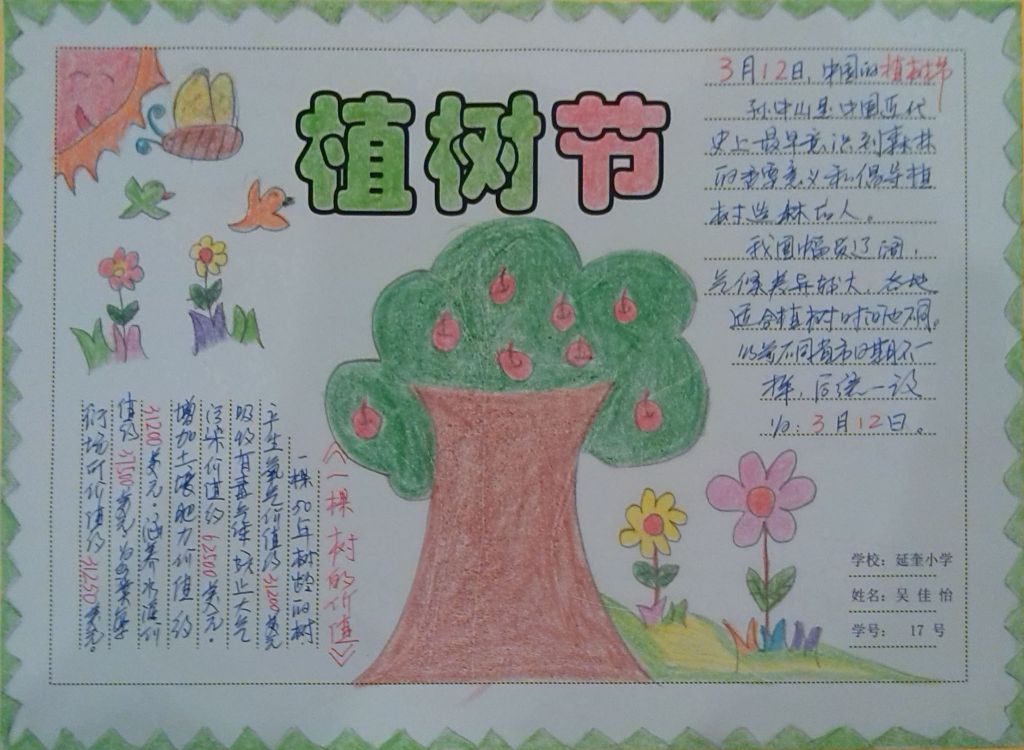 植树节
3月12日，中国的植树节
孙中山是中国近代
史上最早意识到森林
的重要意义和倡导植
树造林的人。
我国幅员辽阔，
气候差异较大，各地
适合植树时间也不同。
以前不同省市日期不一
样，后统一设
为：3月12日。
《一棵树的价值》
一棵50年树龄的树
产生氧气价值约31200美元
吸收有毒气体防止大气
污染价值约62500美元。
增加土壤肥力价值约
31200美元。涵养水源价
值约37500美元为鸟类等
价值约31250美元。
学校：延奎小学
姓名：吴佳怡
学号：17号